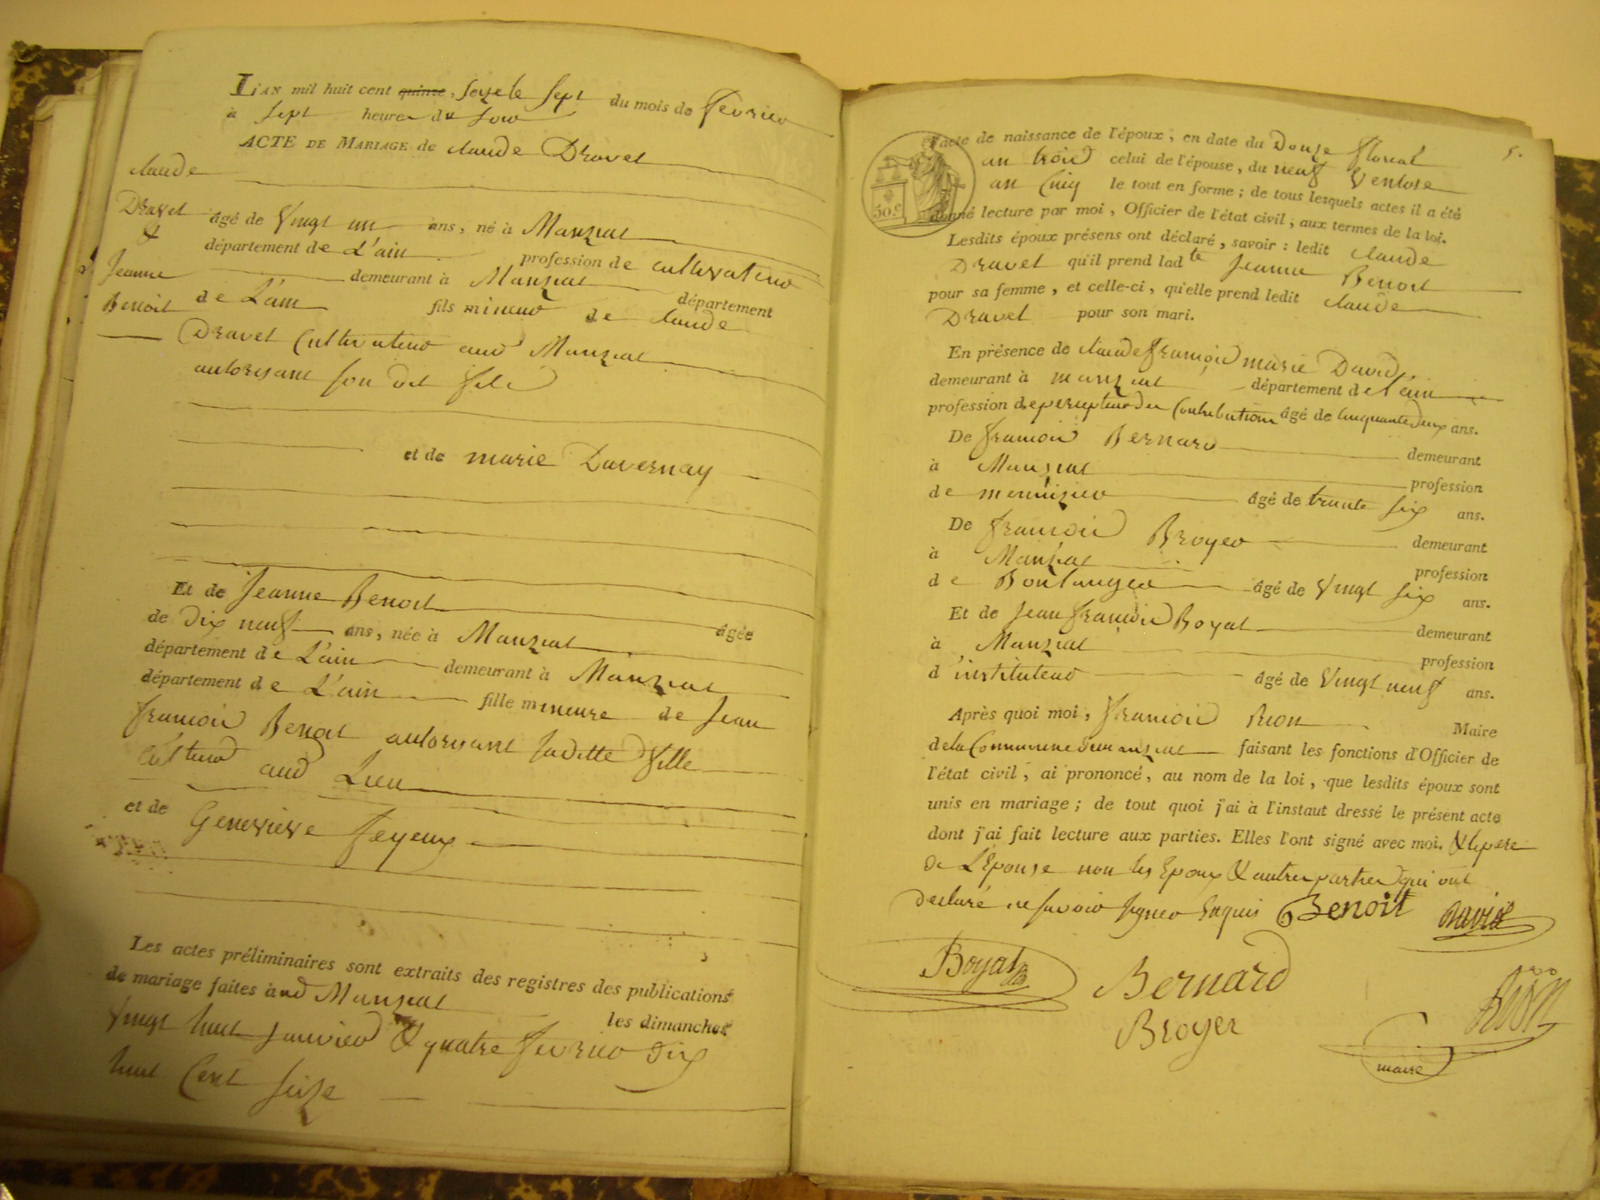 L'AN mil huit cent quinze, seize le sept du mois de fevrier
à sept heures du soir
ACTE DE MARIAGE de claude Dravet
claude
Dravet
&
Jeanne
Benoit
âgé de Vingt un ans, né à Manziat
département de L'ain profession de cultivateur
demeurant à Manziat département
de L'ain fils mineur de claude
Dravet Cultivateur aud Manziat
autorisant son dit fils
et de marie Davernay
Et de Jeanne Benoit âgée
de Dix neuf ans, née à Manziat
département de L'ain demeurant à Manziat
département de L'ain fille mineure de Jean
francois Benoit autorisant saditte fille
aud Lieu
et de Genevieve feyeux
Les actes préliminaires sont extraits des registres des publications
de mariage faites aud Manziat les dimanches
Vingt huit Janvier & quatre fevrier Dix
huit Cent seize
5.
50 c
l'acte de naissance de l'époux, en date du Douze floreal
an trois celui de l'épouse, du neuf Ventose
an Cinq le tout en forme; de tous lesquels actes il a été
donné lecture par moi, Officier de l'état civil, aux termes de la loi.
Lesdits époux présens ont déclaré, savoir: ledit claude
Dravet qu'il prend ladte Jeanne Benoit
pour sa femme, et celle-ci, qu'elle prend ledit claude
Dravet pour son mari.
En présence de claude francois marie David
demeurant à manziat département de L'ain
profession de percepteur des Contributions âgé de Cinquante deux ans.
De francois Bernard demeurant
à Manziat profession
de menuisier âgé de trente six ans.
De francois Broyer demeurant
à Manziat profession
de Boulanger âgé de Vingt six ans.
Et de Jean francois Boyat demeurant
à Manziat profession
d'instituteur âgé de Vingt neuf ans.
Après quoi moi, francois Rion Maire
de la Commune de manziat faisant les fonctions d'Officier de
l'état civil, ai prononcé, au nom de la loi, que lesdits époux sont
unis en mariage; de tout quoi j'ai à l'instaut dressé le présent acte
dont j'ai fait lecture aux parties. Elles l'ont signé avec moi. & le pere
de L'Epouse non les Epoux & autres parties qui ont
declaré ne savoir signer Enquis Benoit David
Boyat Bernard Rion
Broyer maire